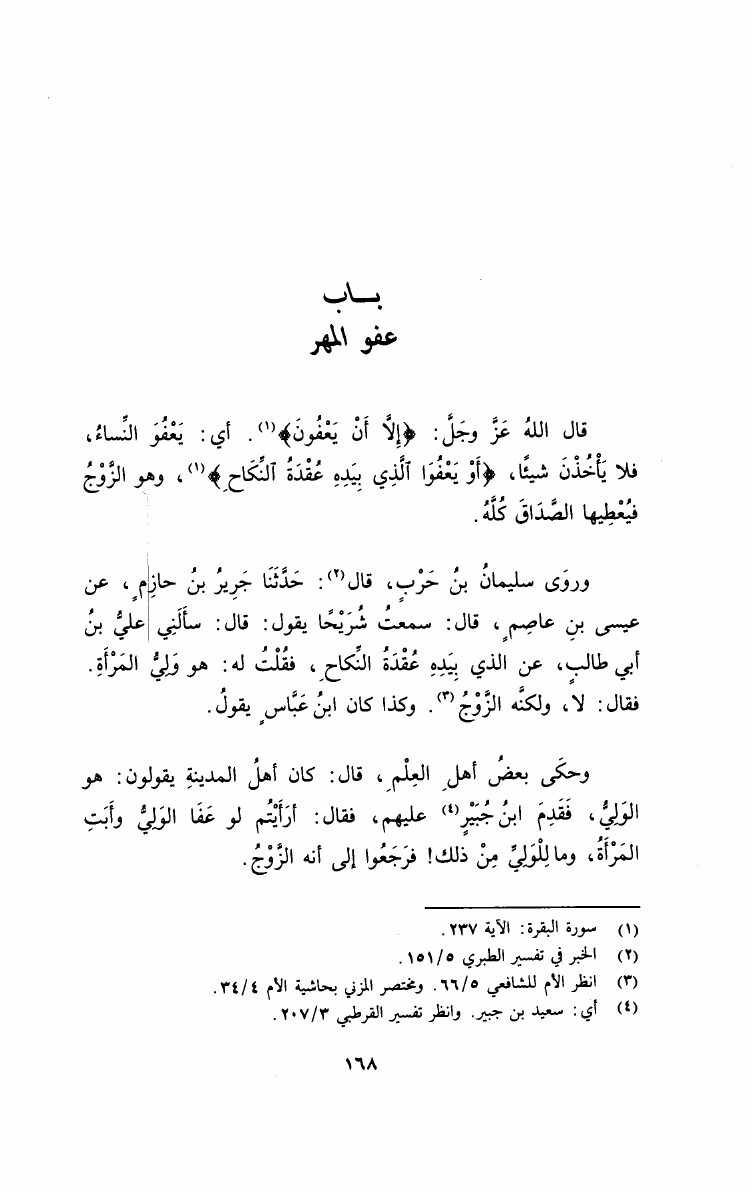 بـــاب
عفو المهر
قال اللهُ عَزَّ وجَلَّ: ﴿إِلَّا أَنْ يَعْفُونَ﴾(١). أي: يَعْفُوَ النِّساءُ،
فلا يَأْخُذْنَ شيئًا، ﴿أَوْ يَعْفُوَا ٱلَّذِي بِيَدِهِ عُقْدَةُ ٱلنِّكَاحِ﴾(١)، وهو الزَّوْجُ
فيُعْطِيها الصَّدَاقَ كُلَّهُ.
وروَى سليمانُ بنُ حَرْبٍ، قال(٢): حَدَّثَنَا جَرِيرُ بنُ حازِمٍ، عن
عيسى بنِ عاصِمٍ، قال: سمعتُ شُرَيْحًا يقول: قال: سأَلَنِي عليُّ بنُ
أبي طالبٍ، عن الذي بِيَدِهِ عُقْدَةُ النِّكاحِ، فقُلْتُ له: هو وَلِيُّ المَرْأَةِ.
فقال: لا، ولكنَّه الزَّوْجُ(٣). وكذا كان ابنُ عَبَّاسٍ يقولُ.
وحكَى بعضُ أهلِ العِلْمِ، قال: كان أهلُ المدينةِ يقولون: هو
الوَلِيُّ، فَقَدِمَ ابنُ جُبَيْرٍ(٤) عليهم، فقال: أرَأَيْتُم لو عَفَا الوَلِيُّ وأَبَتِ
المَرْأَةُ، وما لِلْوَلِيِّ مِنْ ذلك! فرَجَعُوا إلى أنه الزَّوْجُ.
(١) سورة البقرة: الآية ٢٣٧.
(٢) الخبر في تفسير الطبري ١٥١/٥.
(٣) انظر الأم للشافعي ٦٦/٥. ومختصر المزني بحاشية الأم ٣٤/٤.
(٤) أي: سعيد بن جبير. وانظر تفسير القرطبي ٢٠٧/٣.
١٦٨